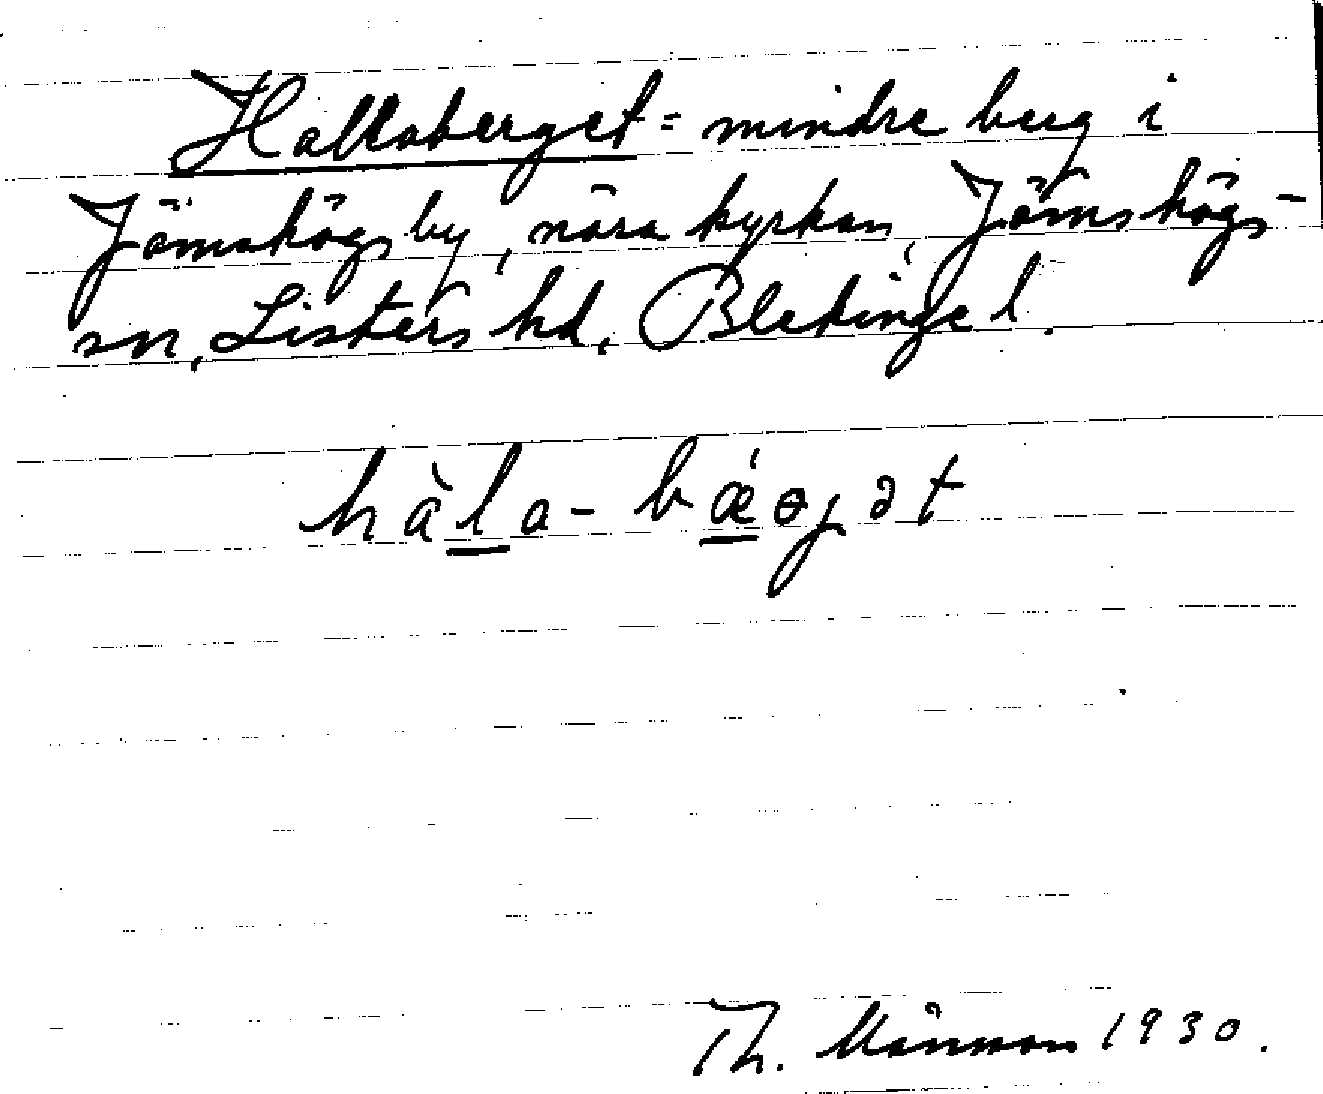 Hallaberget = mindre berg i
Jämshögs by, nära kyrkan, Jämshögs-
sn, Listers hd, Blekinge l.
hàla-bǽɵɟət
Th. Månsson 1930.